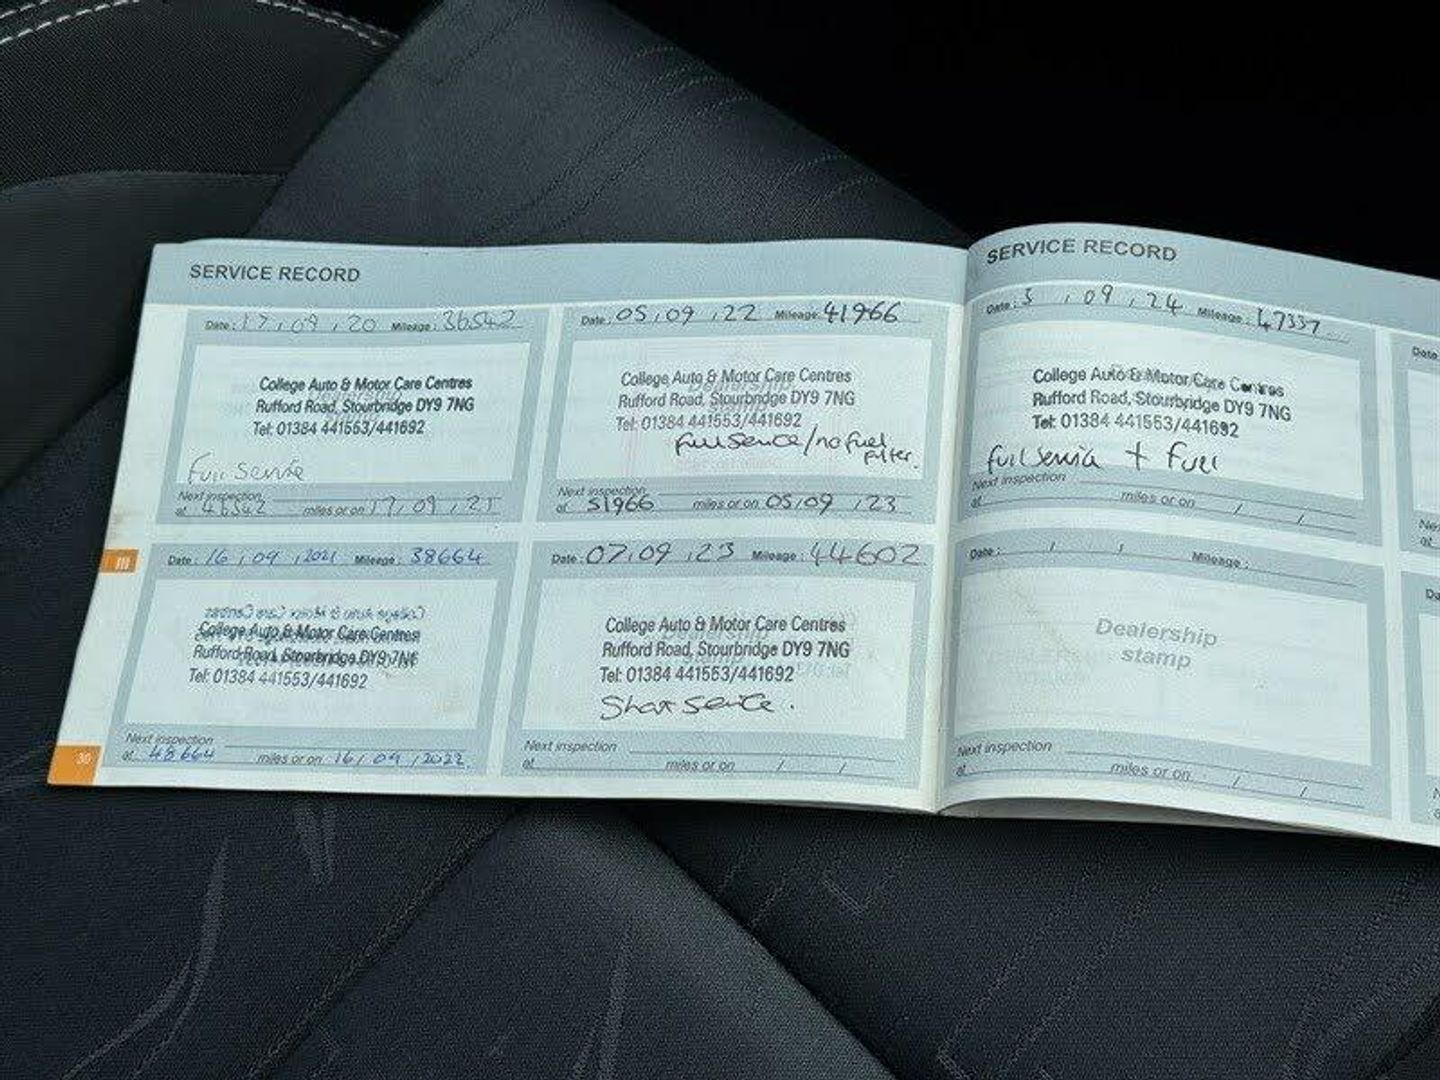 SERVICE RECORD
Date: 17, 09, 20 Mileage: 36542
College Auto & Motor Care Centres
Rufford Road, Stourbridge DY9 7NG
Tel: 01384 441553/441692
Full Service
Next inspection
at 46542 miles or on 17, 09, 21
Date: 16, 09, 2021 Mileage: 38664
College Auto & Motor Care Centres
Rufford Road, Stourbridge DY9 7NG
Tel: 01384 441553/441692
Next inspection
at 48664 miles or on 16, 09, 2022
30
Date: 05, 09, 22 Mileage: 41966
College Auto & Motor Care Centres
Rufford Road, Stourbridge DY9 7NG
Tel: 01384 441553/441692
Full service/no fuel
filter.
Next inspection
at 51966 miles or on 05, 09, 23
Date: 07, 09, 23 Mileage: 44602
College Auto & Motor Care Centres
Rufford Road, Stourbridge DY9 7NG
Tel: 01384 441553/441692
Short service.
Next inspection
at miles or on / /
SERVICE RECORD
Date: 3, 09, 24 Mileage: 47337
College Auto & Motor Care Centres
Rufford Road, Stourbridge DY9 7NG
Tel: 01384 441553/441692
full service + fuel
Next inspection
at miles or on / /
Date: / / Mileage:
Dealership
stamp
Next inspection
at miles or on / /
Date